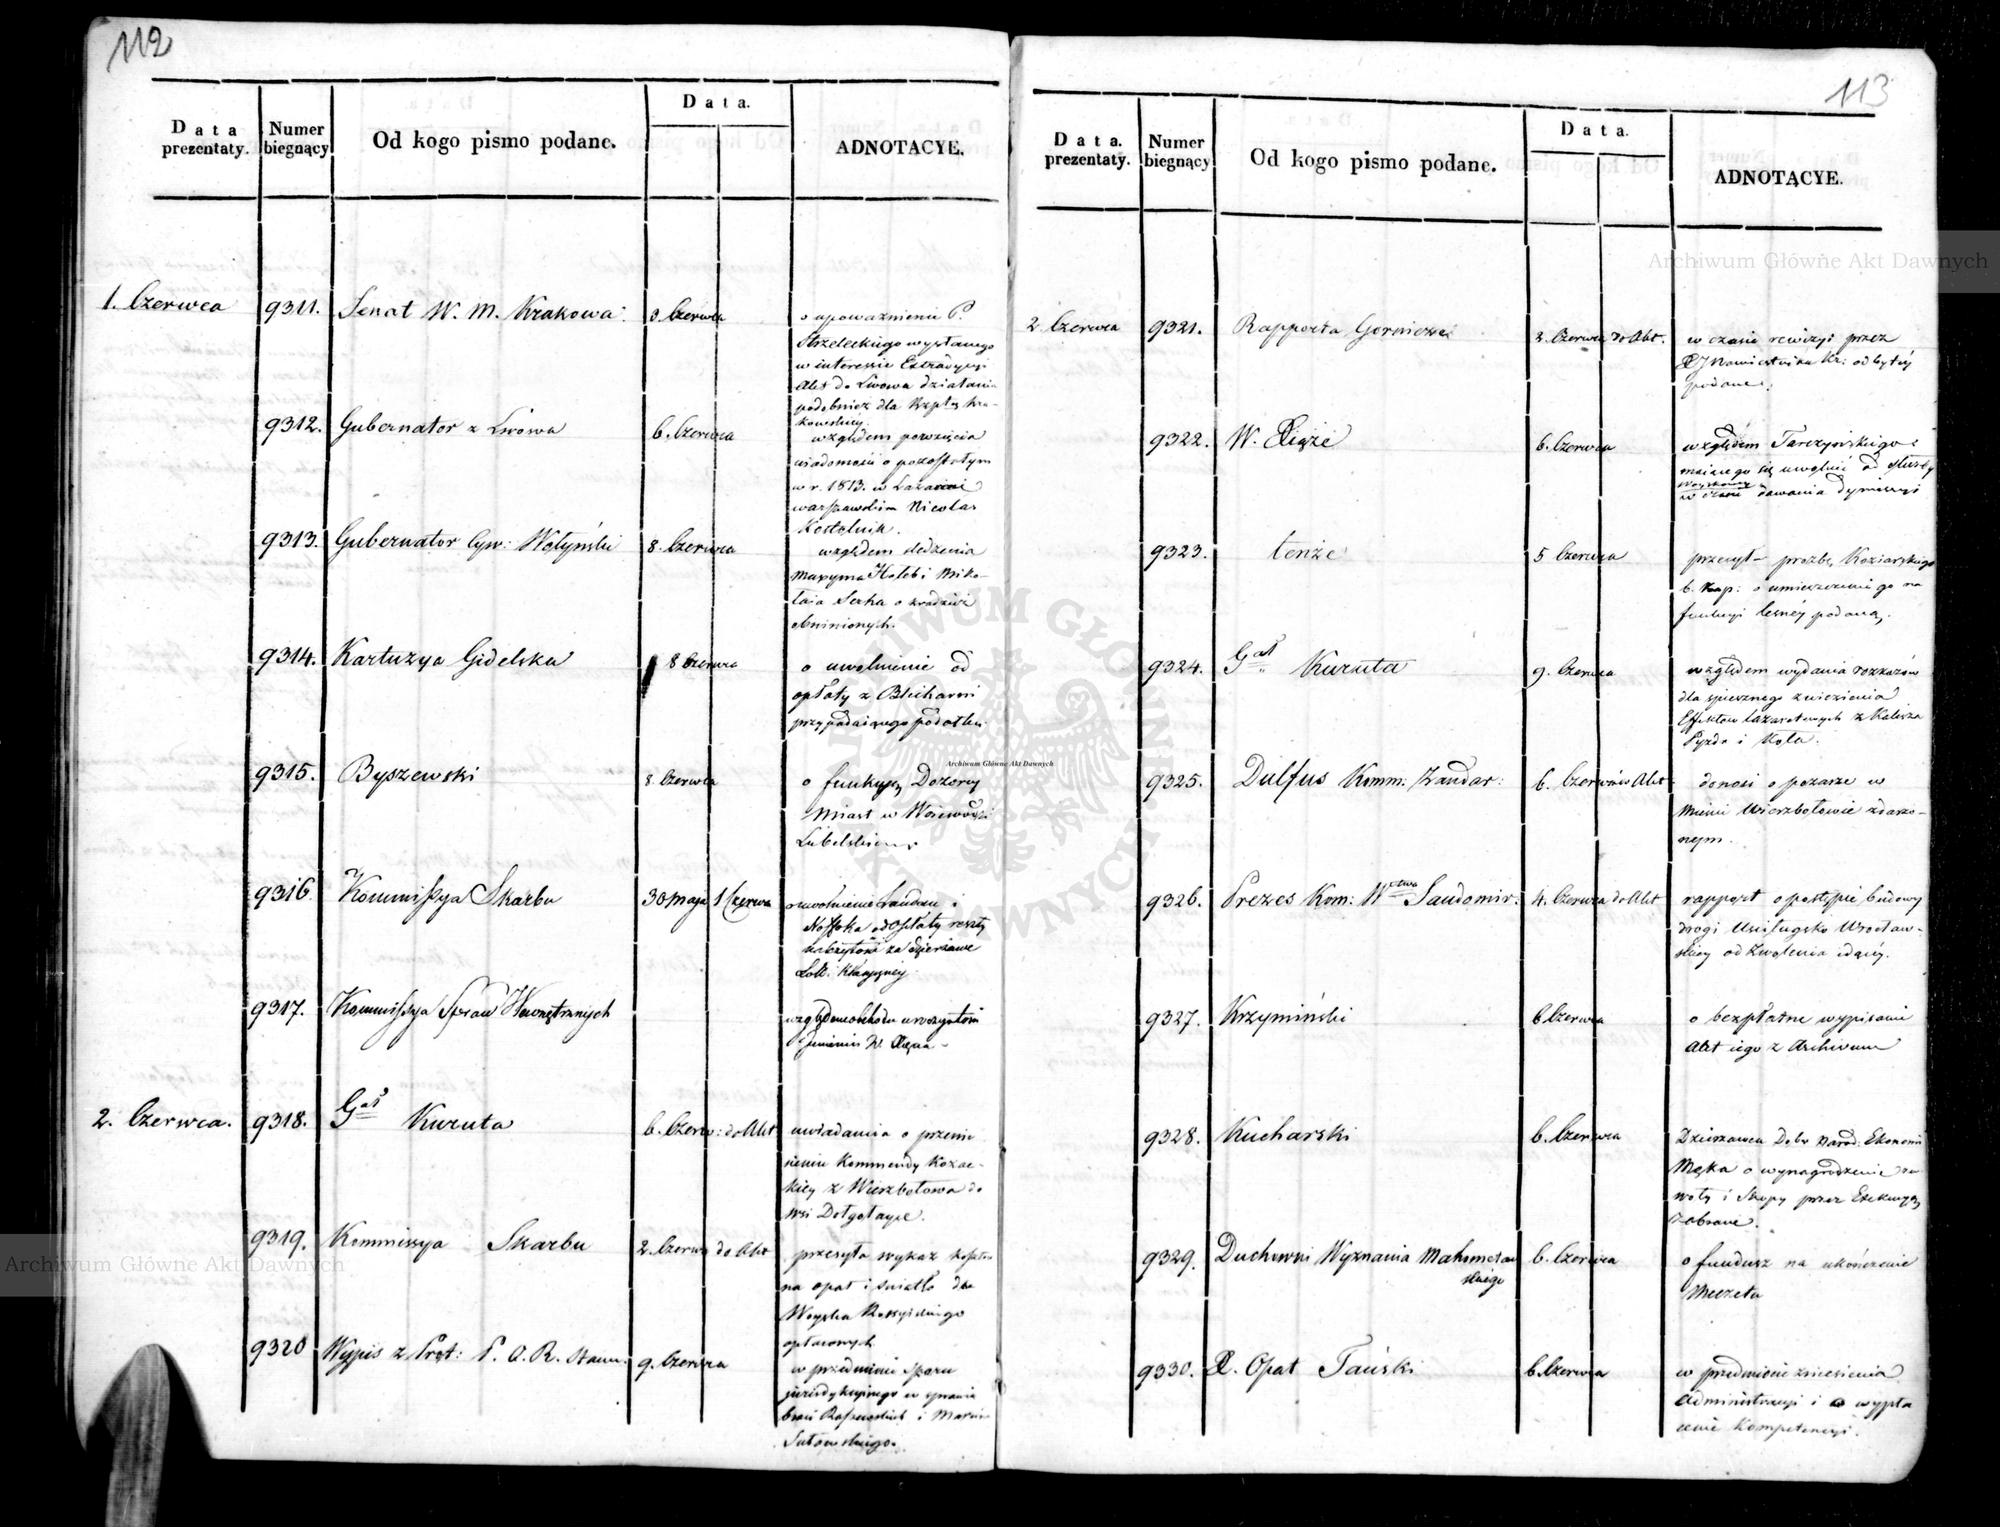 112
Data prezentaty.
Numer biegnący
Od kogo pismo podane.
Data.
ADNOTACYE.
1. Czerwca
9311.
Senat W. M. Krakowa
3 Czerwca
o upoważnieniu P.
Strzeleckiego wysłanego
w interessie Extradycyi
Akt do Lwowa działania
podobnież dla Rzpltey Kra-
kowskiey.
9312.
Gubernator z Lwowa
6. Czerwca
względem powzięcia
wiadomości o pozostałym
w r. 1813. w Lazarecie
warszawskim Nicolas
Kostelnik.
9313.
Gubernator Cyw: Wołyński
8. Czerwca
względem śledzenia
Maxyma Hołeb i Miko-
łaia o kradzież
obwinionych.
9314.
Kartuzya Gidelska
8 Czerwca
o uwolnienie od
opłaty z Blicharni
przypadaiącego podatku.
9315.
Byszewski
8 Czerwca
o funkcyą Dozorcy
Miast w Wojewódz
Lubelskiem
9316
Kommissya Skarbu
30 Maja 1 Czerwca
o uwolnienie Landau i
Nossoka od opłaty reszty
należytości za dzierżawę
Lott: Klassyczney.
9317.
Kommissya Spraw Wewnętrznych
względem obchodu uroczystości
Jmienin W. Xięcia
2. Czerwca.
9318.
Gał Kuruta
6. Czerw: do Akt
uwiadamia o przenie
sieniu Kommendy Kozac-
kiey z Wierzbołowa do
wsi
9319.
Kommissya Skarbu
2. Czerwca do Akt
przesyła wykaz kosztów
na opał i światło dla
Woyska Rossyiskiego
opłaconych
9320
Wypis z Prot: P. A. R. Stanu.
9. Czerwca
w przedmiocie sporu
jurisdykcyinego w sprawie
braci i Marcin
Sutowskiego.
113
Data. prezentaty.
Numer biegnący
Od kogo pismo podane.
Data.
ADNOTACYE.
2. Czerwca
9321.
Rapporta Gornicze
2. Czerwca do Akt.
w czasie rewizyi przez
XJ Namiestnika Kr: odbytéy
podane.
9322.
W. Xiąże
6. Czerwca
względem Tarczyńskiego
maiącego się uwolnić od służby
Woyskowey
w czasie dawania dymissyi
9323.
tenże
5 Czerwca
przesył- prozbę Koziarskiego
b. kap: o umieszczenie go na
funkcyi leśney podaną.
9324.
Gał Kuruta
9. Czerwca
względem wydania rozkazów
dla spiesznego zwiezienia
Effektow Lazaretowych z Kalisza
Pyzdr i Koła.
9325.
Dulfus Komm: Żandar:
6. Czerwca do Akt
donosi o pożarze w
Mieście Wierzbołowie zdarzo-
nym.
9326.
Prezes Kom: Wctwa Sandomir:
4. Czerwca do Akt
rapport o postępie budowy
drogi Uściługsko Wrocław-
skiey od Zwolenia idącéy.
9327.
Krzymiński
6 Czerwca
o bezpłatne wypisanie
Akt iego z Archiwum
9328.
Kucharski
6. Czerwca
Dzierżawca Dobr Narod: Ekonomii
Męka o wynagrodzenie za
woły i Skopy przez Exekucyą
zabrane.
9329.
Duchowni Wyznania Mahometań
skiego
6. Czerwca
o fundusz na ukończenie
Meczetu
9330.
X. Opat Tański
6. Czerwca
w przedmiocie zniesienia
Administracyi i o wypła
cenie Kompetencyi.
Archiwum Główne Akt Dawnych
Archiwum Główne Akt Dawnych
Archiwum Główne Akt Dawnych
ARCHIWUM GŁÓWNE AKT DAWNYCH